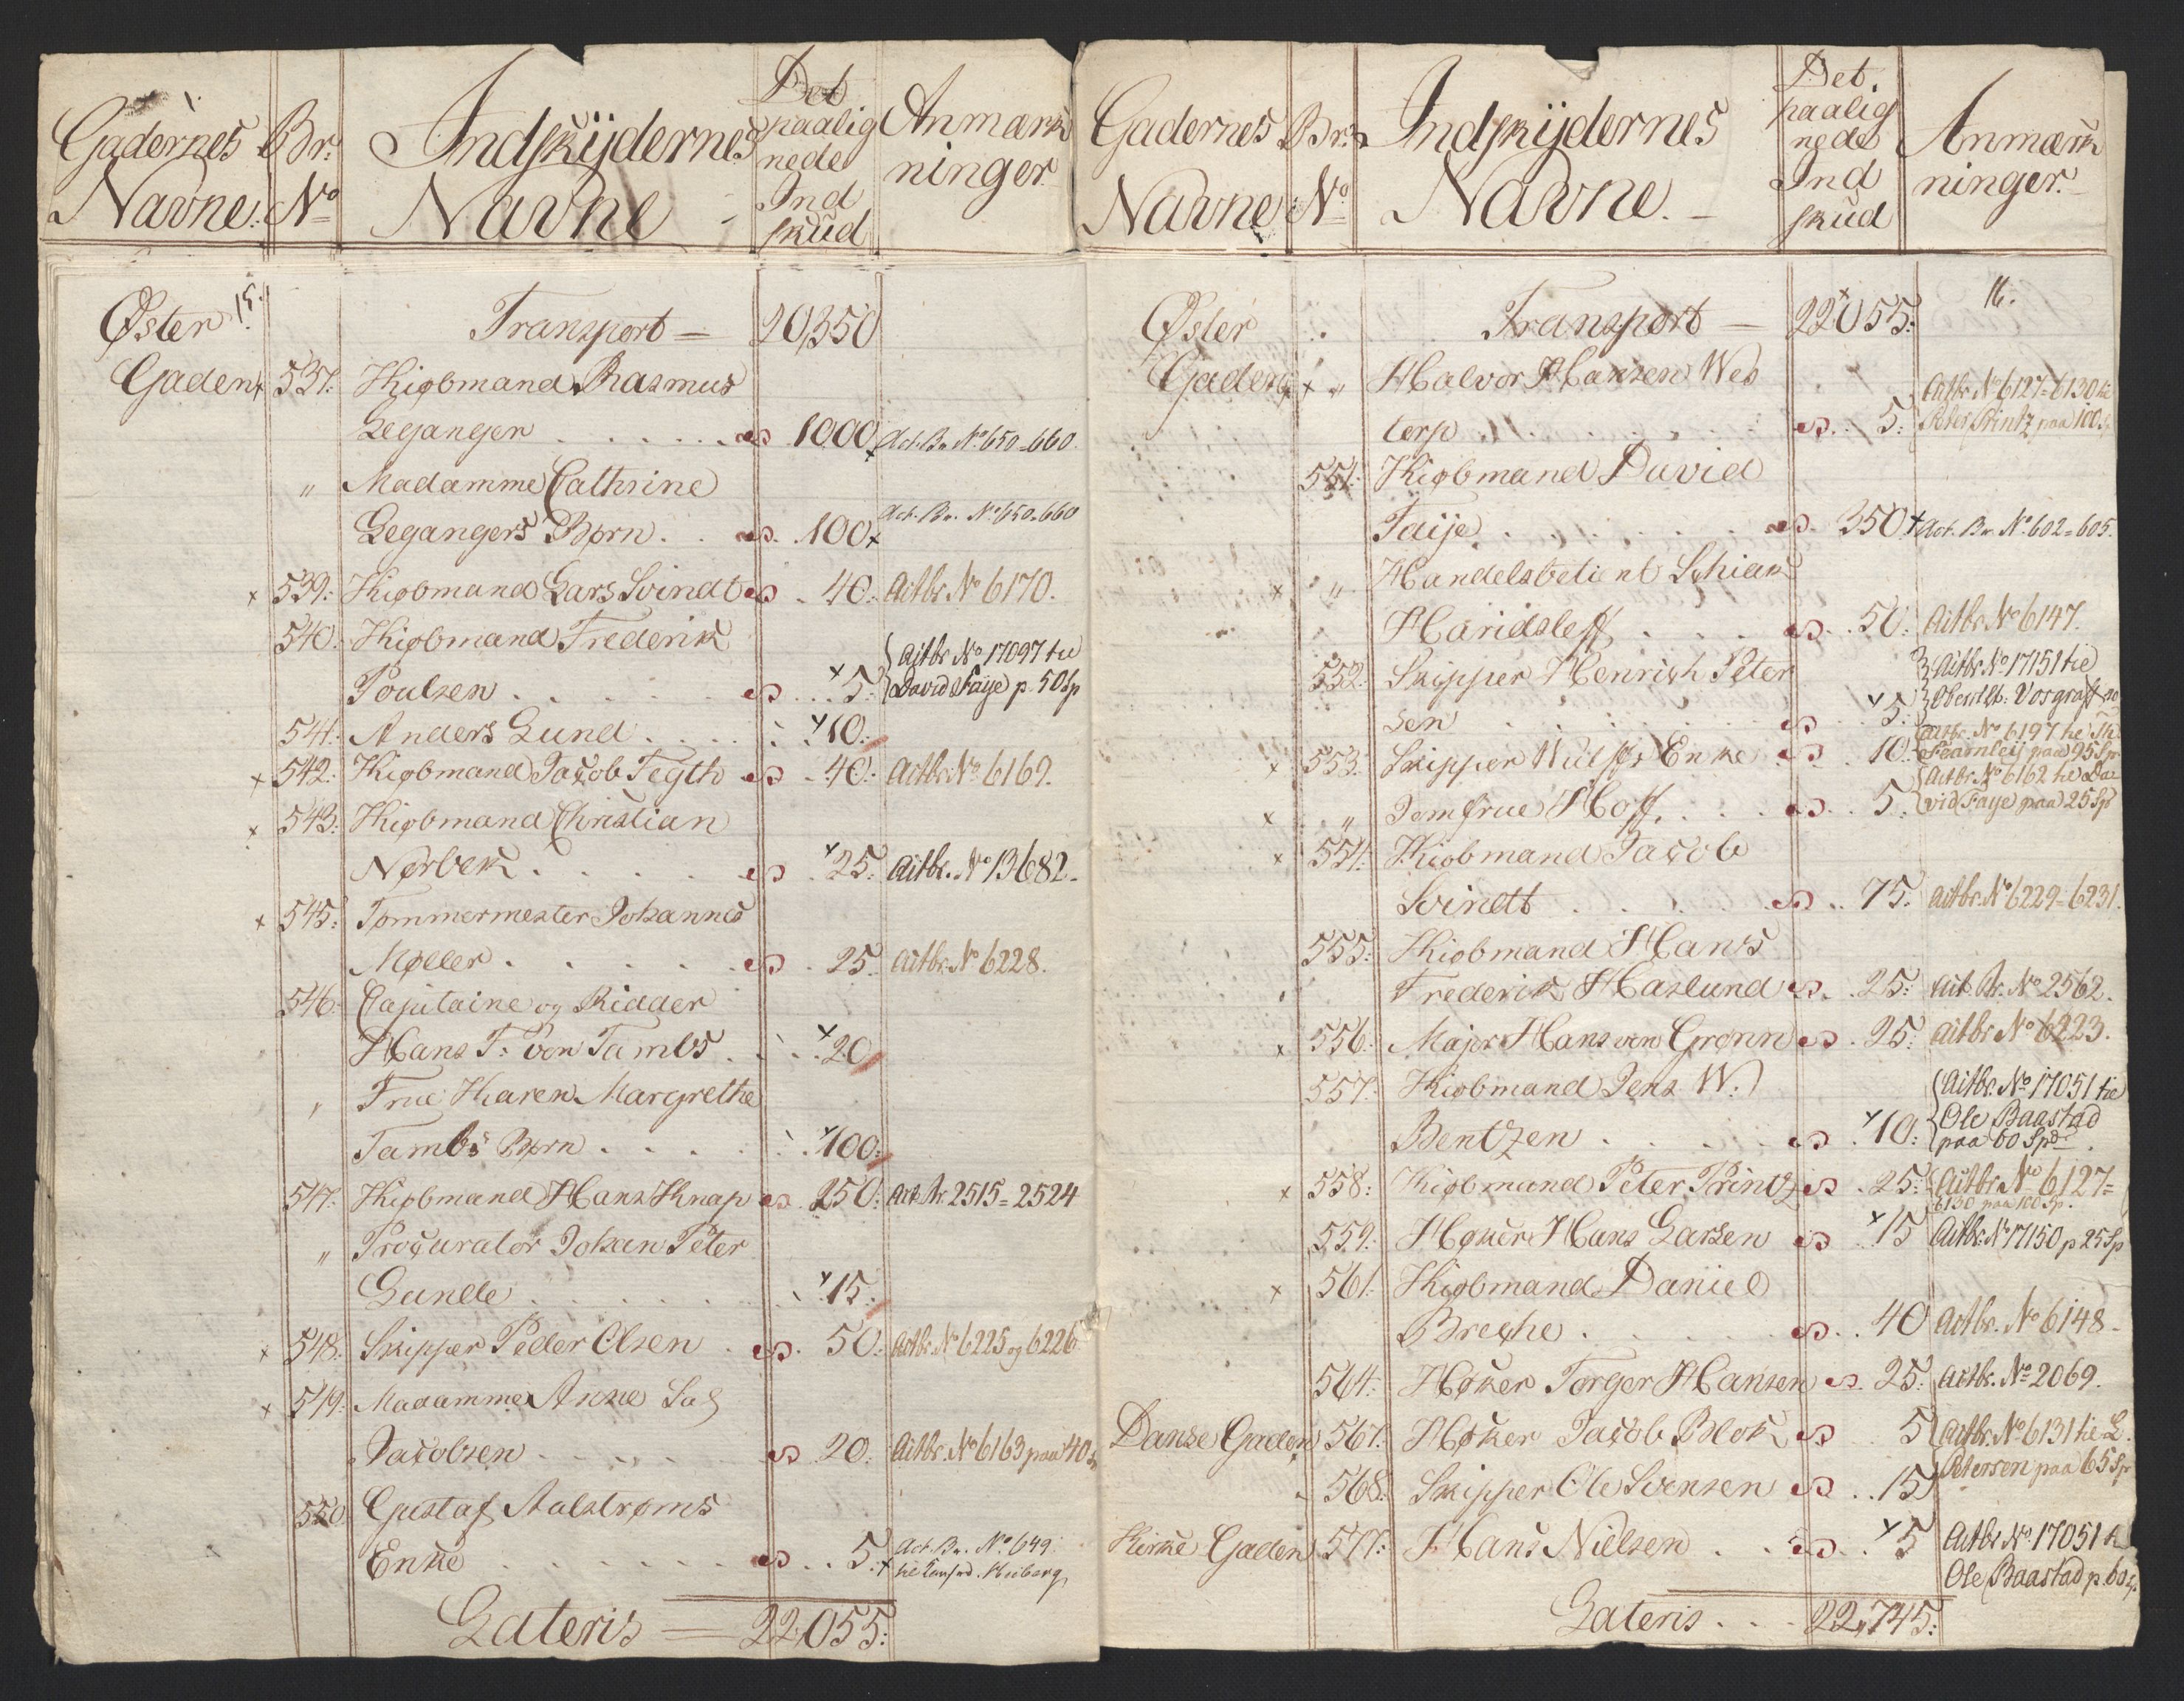 Gadernes Br: Indskÿdernes Det Anmærk
Navne: No Navne paalig ninger
nede
Ind
skud
Øster 15. Transport = 20,350
Gaden x 537: Kiøbmand Rasmus
Leganger . . . . . . 1000 x Act. Br. No 650-660.
" Madamme Cathrine
Legangers Børn . . 100 x Act. Br. No 650-660
x 539: Kiøbmand Lars Svindt . 40: Actbr No 6170.
540: Kiøbmand Frederik
Poulsen . . . . . x 5: Actbr No 17097 til
David Faÿe p. 50 Sp
541: Anders Lund . . . . x 10:
x 542: Kiøbmand Jacob Fegth . 40: Actbr No 6169.
x 543: Kiøbmand Christian
Nørbek . . . . . x 25: Actbr. No 13682.
x 545: Tømmermester Johannes
Møller . . . . . . 25. Actbr. No 6228.
546: Capitaine og Ridder
Hans T: von Tambs . . x 20
" Frue Karen Margrethe
Tambs Børn . . . . x 100:
547: Kiøbmand Hans Knap . 250: Act Nr. 2515=2524
" Procurator Johan Peter
Lunde . . . . . . x 15:
x 548: Skipper Peder Olsen . 50: Actbr. No 6225 og 6226
x 549: Madamme Anne Sal
Jacobsen . . . . . 20: Actbr. No 6163 paa 40 Sp
550 Gustaf Aalstrøms
Enke . . . . . . . 5: x Act. Br. No 649.
Lateris = 22,055:
Gadernes Br: Indskÿdernes Det Anmærk
Navne No Navne. paalig ninger.
nede
Ind
skud
Øster Transport = 22055: 16.
Gaden x " Halvor Hansen Wes Actbr No 6127=6130 til
terp . . . . . . . . 5: Peter Printz paa 100 Sp
551: Kiøbmand David
Faÿe . . . . . . . 350 x Act. Br. No. 602=605.
x " Handelsbetient Schiak
Haridsleff . . . . 50: Actbr No 6147.
552: Skipper Henrich Peter Actbr. No 17151 til
sen . . . . . . . x 5:
x 553: Skipper Wulffs Enke . 10: Actbr. No 6197 til Th:
Fearnleÿ paa 95 Sp
x " Jomfrue Hoff . . . . 5: Actbr. No 6162 til Da
vid Faye paa 25 Sp
x 554: Kiøbmand Jacob
Svindt . . . . . . 75: Actbr. No 6229=6231.
555: Kiøbmand Hans
Frederik Haslund . 25: Act. Br. No 2562.
x 556: Major Hans von Grønn . 25: Actbr No 6223.
557: Kiøbmand Jens W: Actbr. No 17051 til
Bentzen . . . . . x 10: Ole Baastad
paa 60 Spd.
x 558: Kiøbmand Peter Printz . 25: Actbr No 6127=
6130 paa 100 Sp.
559: Høker Hans Larsen x 15 Actbr. No 17150 p 25 Sp
x 561: Kiøbmand Daniel
Breche . . . . . . 40 Actbr. No 6148.
564: Høker Torger Hansen . 25: Actbr. No 2069.
Danse Gaden 567: Høker Jacob Blok 5 Actbr. No 6131 til L.
568: Skipper Ole Svensen . . 15 Petersen paa 65 Sp
Kirke Gaden 577: Hans Nielsen . . x 5 Actbr No 17051 til
Ole Baastad p. 60 Sp.
Lateris . . . 22,745: